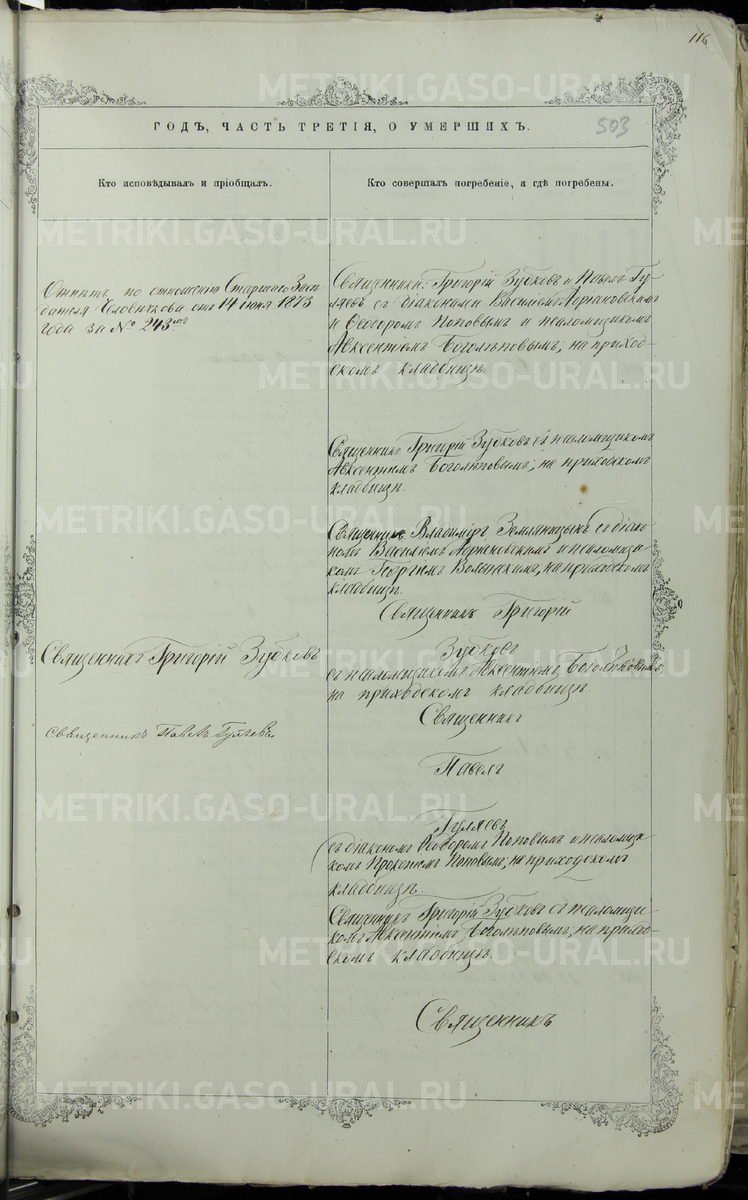 116
503
ГОДЪ, ЧАСТЬ ТРЕТІЯ, О УМЕРШИХЪ.
Кто исповѣдывалъ и пріобщалъ.
Кто совершалъ погребеніе, и гдѣ погребены.
Отпѣтъ по отношенію Старшаго Засѣ-
дателя Человѣчкова отъ 14 іюня 1873
года за № 243мъ
Священники: Григорій Зубковъ и Павелъ Гу-
ляевъ съ діаконами Василіемъ
и Ѳеодоромъ Поповымъ и псаломщикомъ
Авксентіемъ Боголѣповымъ, на приход-
скомъ кладбищѣ.
Священникъ Григорій Зубковъ съ псаломщикомъ
Авксентіемъ Боголѣповымъ, на приходскомъ
кладбищѣ.
Священникъ Владиміръ Земляницынъ съ діако-
номъ Василіемъ и псаломщи-
комъ Георгіемъ Волынскимъ, на приходскомъ
кладбищѣ.
Священникъ Григорій
Священникъ Григорій Зубковъ
Зубковъ
съ псаломщикомъ Авксентіемъ Боголѣповымъ,
на приходскомъ кладбищѣ.
Священникъ
Священникъ Павелъ Гуляевъ.
Павелъ
Гуляевъ
съ діакономъ Ѳеодоромъ Поповымъ и псаломщи-
комъ Прокопіемъ Поповымъ, на приходскомъ
кладбищѣ.
Священникъ Григорій Зубковъ съ псаломщи-
комъ Авксентіемъ Боголѣповымъ, на приход-
скомъ кладбищѣ.
Священникъ
METRIKI.GASO-URAL.RU